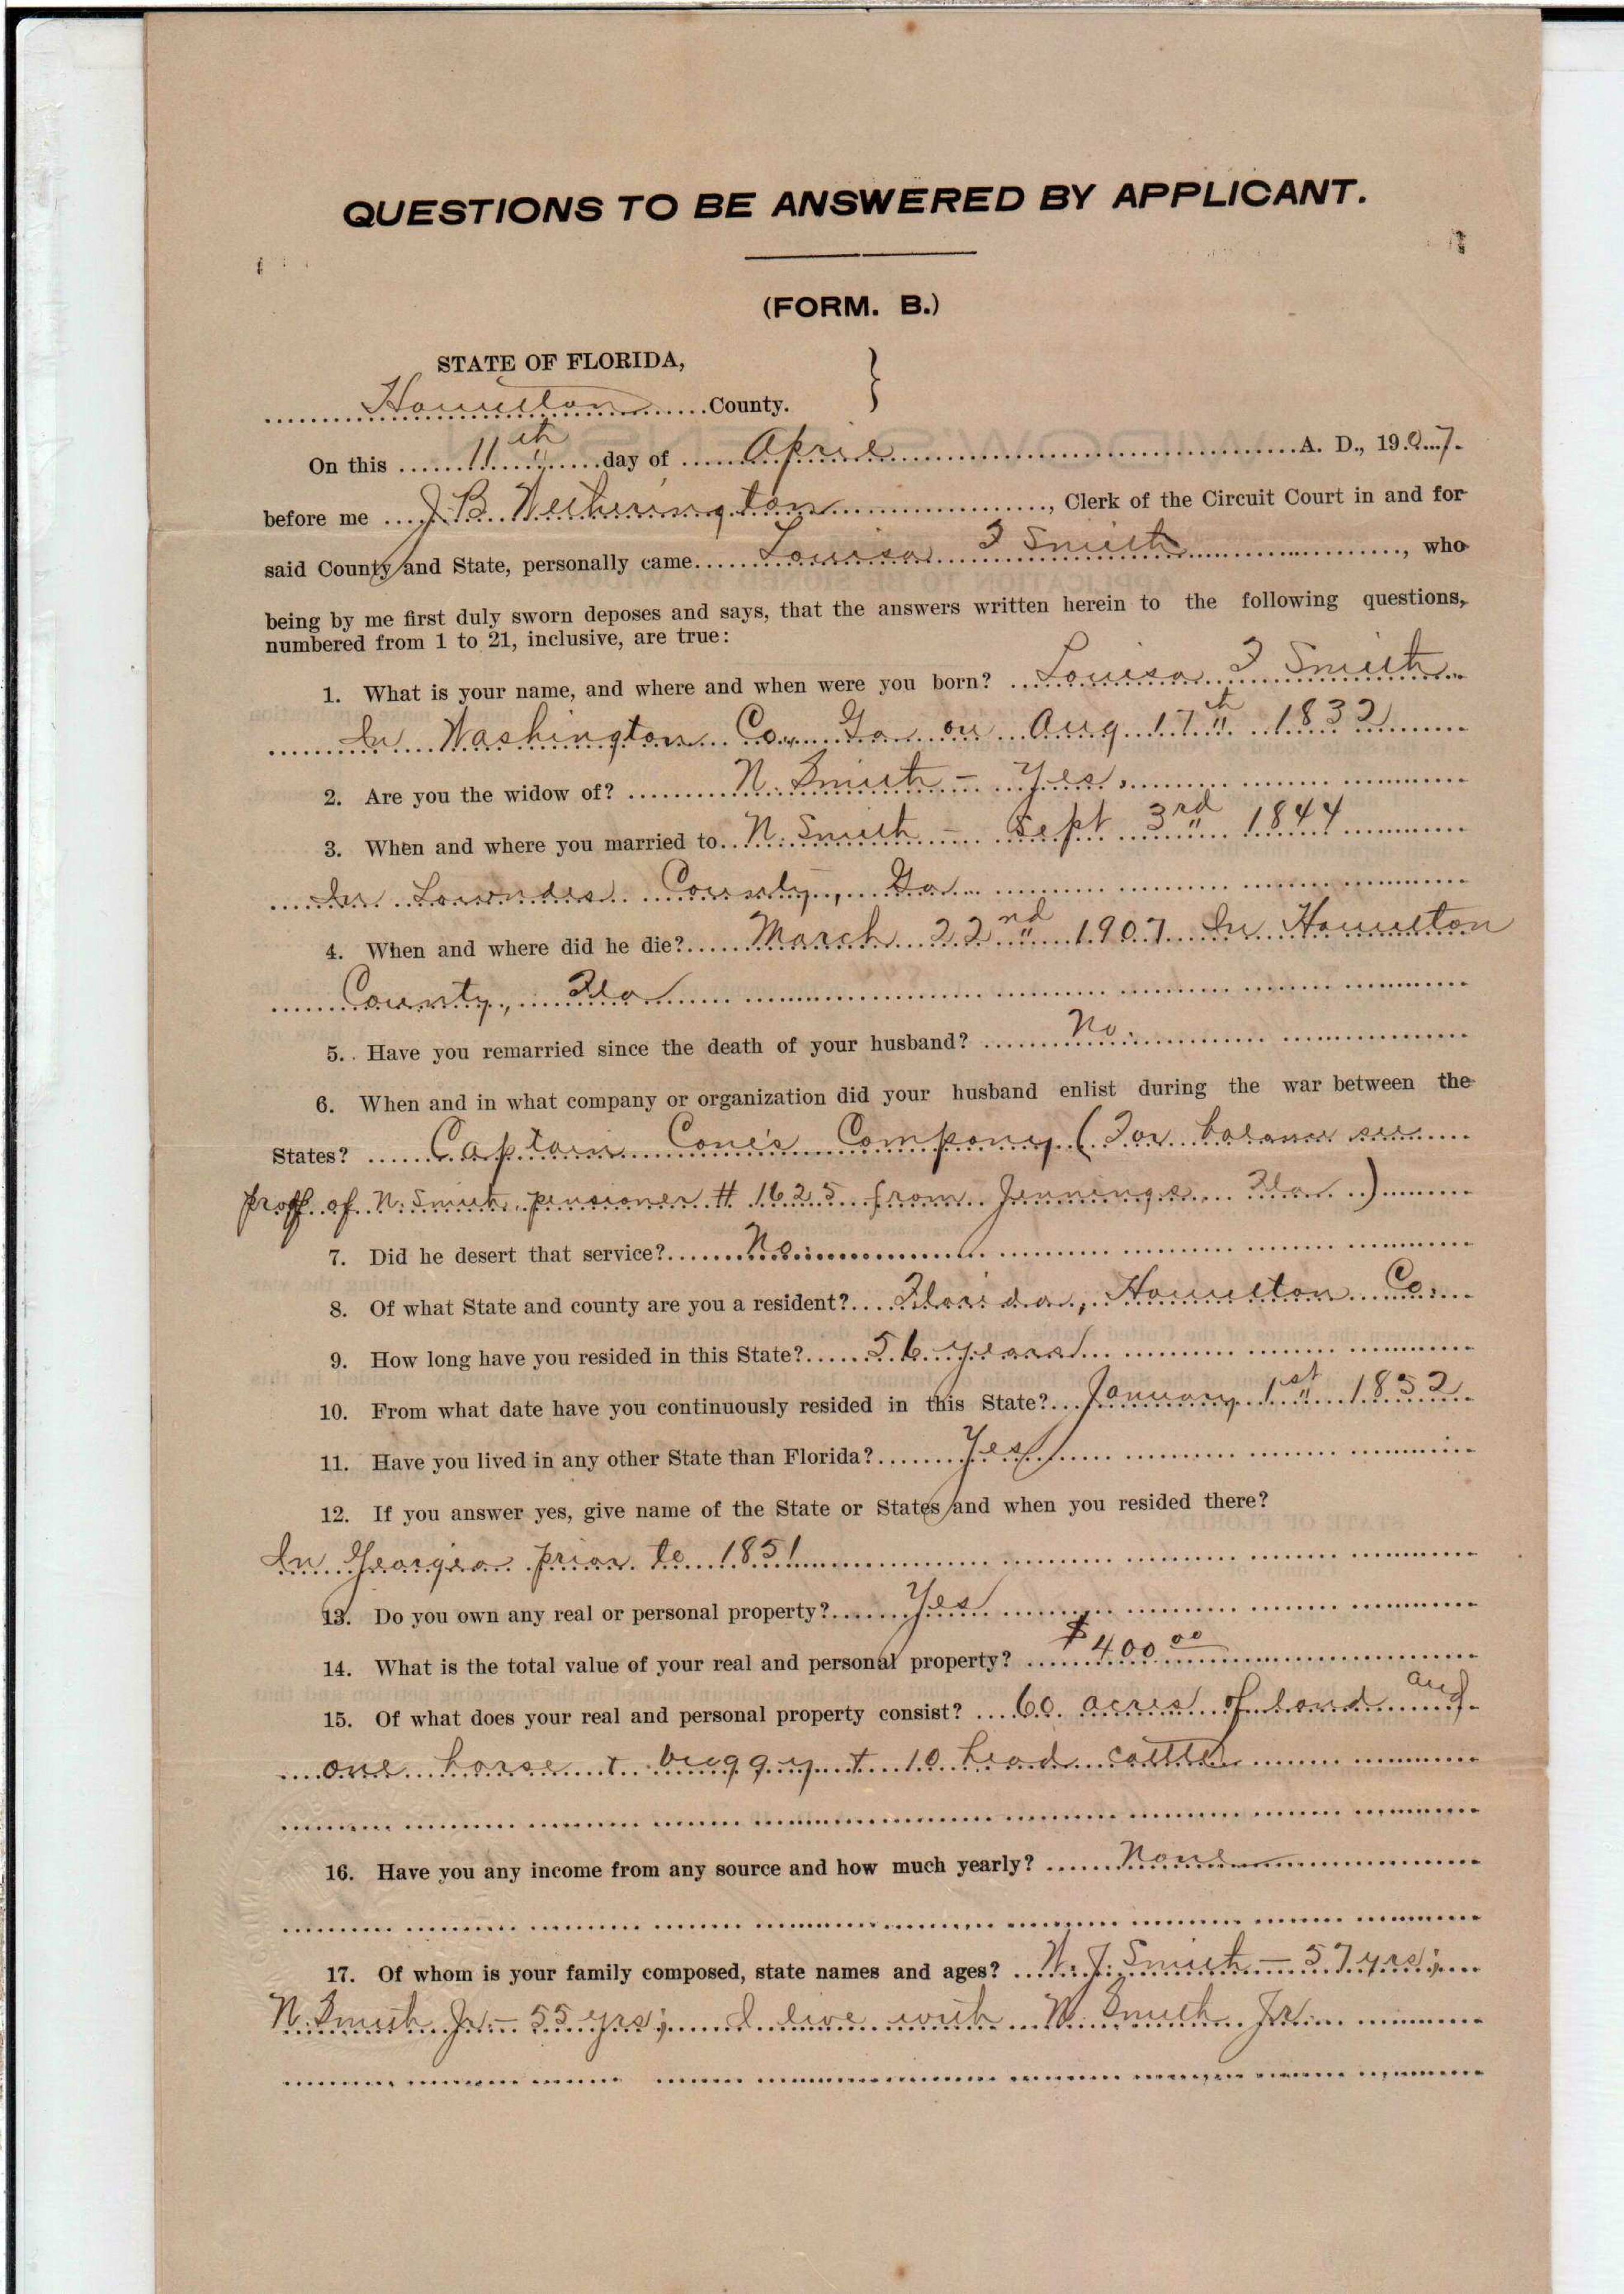 QUESTIONS TO BE ANSWERED BY APPLICANT.
(FORM. B.)
STATE OF FLORIDA,
Hamilton County.
On this 11th day of April A. D., 1907.
before me J B Wetherington, Clerk of the Circuit Court in and for
said County and State, personally came Louisa F Smith, who
being by me first duly sworn deposes and says, that the answers written herein to the following questions,
numbered from 1 to 21, inclusive, are true:
1. What is your name, and where and when were you born? Louisa F Smith
In Washington Co. Ga on Aug 17th 1832
2. Are you the widow of? N. Smith - Yes.
3. When and where you married to N. Smith - Sept 3rd 1844
In Lowndes County, Ga
4. When and where did he die? March 22nd 1907 In Hamilton
County, Fla
5. Have you remarried since the death of your husband? No.
6. When and in what company or organization did your husband enlist during the war between the
States? Captain Cone's Company (For balance see
proff of N. Smith, pensioner # 1625 from Jennings Fla.)
7. Did he desert that service? No.
8. Of what State and county are you a resident? Florida, Hamilton Co.
9. How long have you resided in this State? 56 years
10. From what date have you continuously resided in this State? January 1st 1852.
11. Have you lived in any other State than Florida? Yes
12. If you answer yes, give name of the State or States and when you resided there?
In Georgia prior to 1851
13. Do you own any real or personal property? Yes
14. What is the total value of your real and personal property? $400.00
15. Of what does your real and personal property consist? 60 acres of land and
one horse & buggy & 10 head cattle
16. Have you any income from any source and how much yearly? None
17. Of whom is your family composed, state names and ages? W. J. Smith - 57 yrs;
N. Smith Jr - 55 yrs; I live with N. Smith Jr.